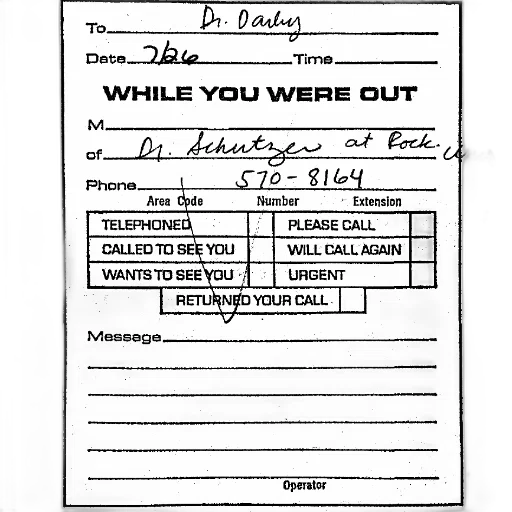 To Dr. Darby
Date 7/26 Time
WHILE YOU WERE OUT
M
of Dr. Schutzer at Rock. U
Phone 570-8164
Area Code Number Extension
TELEPHONED PLEASE CALL
CALLED TO SEE YOU WILL CALL AGAIN
WANTS TO SEE YOU URGENT
RETURNED YOUR CALL
Message
Operator